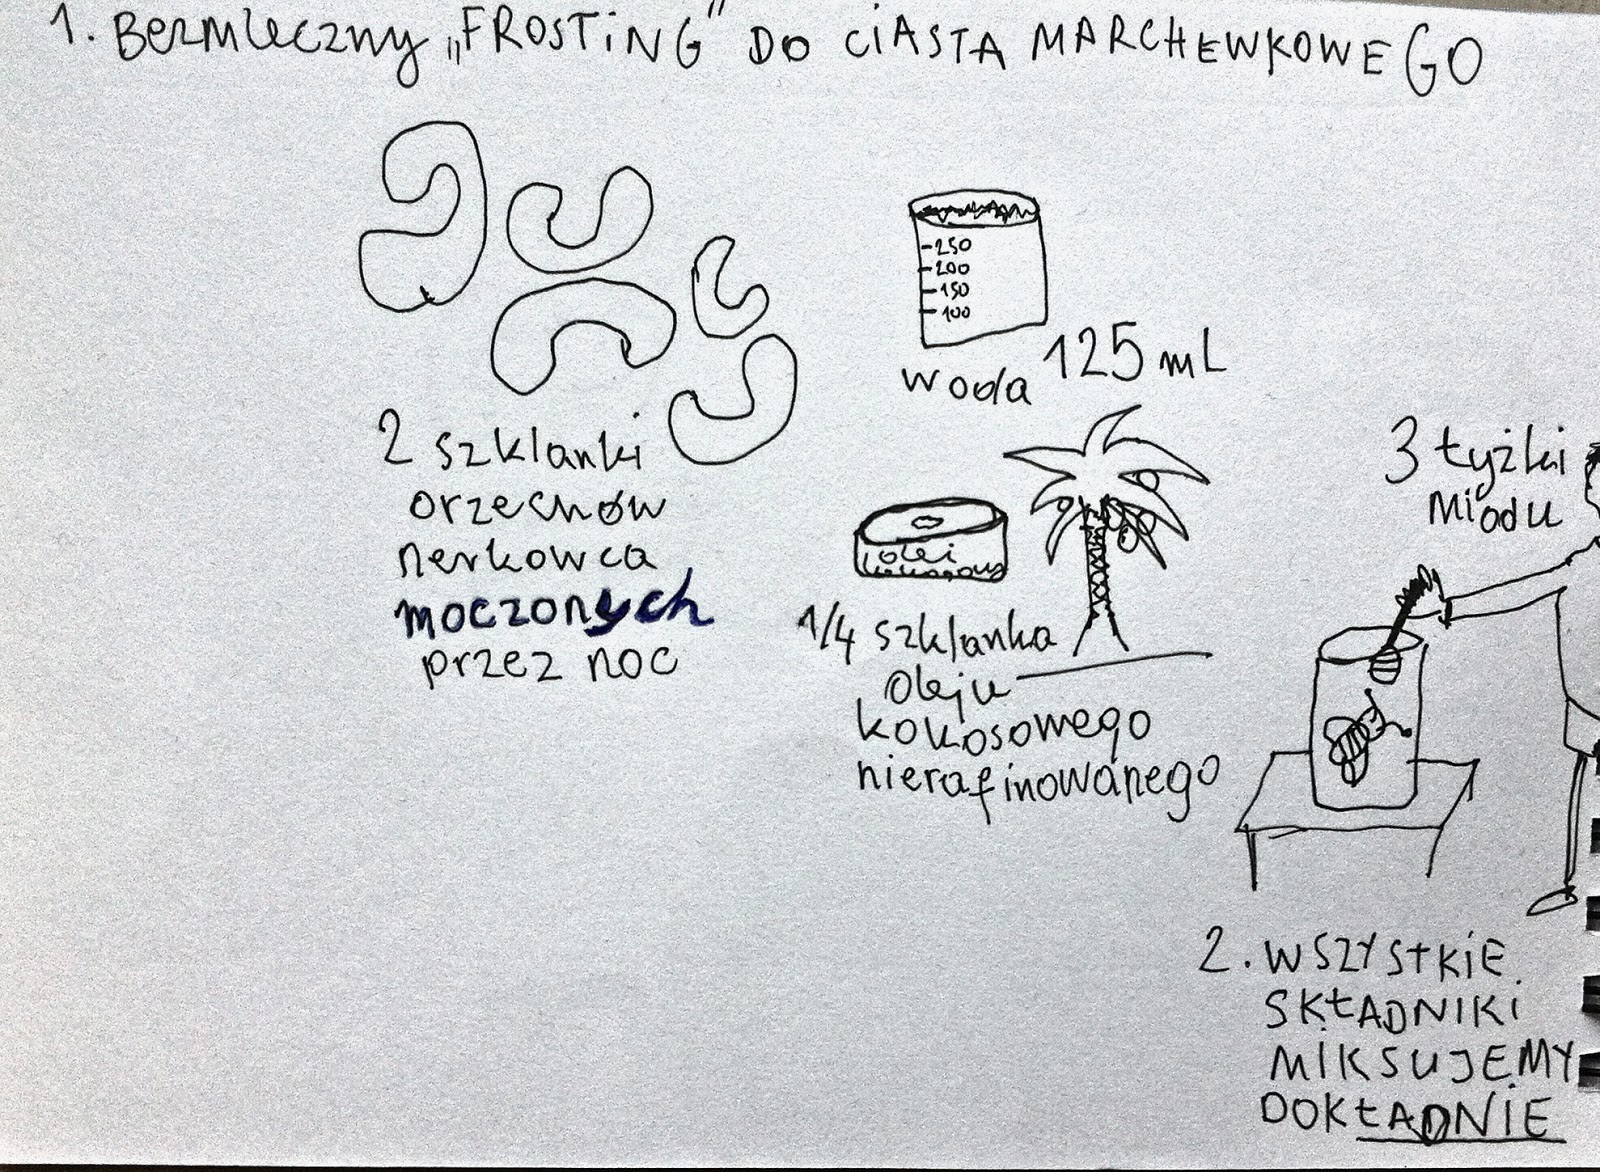 1. Bezmleczny „FROSTING" DO CIASTA MARCHEWKOWEGO
250
200
150
100
woda 125 mL
2 szklanki
orzechów
nerkowca
moczonych
przez noc
olej
kokosowy
1/4 szklanka
oleju
kokosowego
nierafinowanego
3 łyżki
miodu
2. WSZYSTKIE
SKŁADNIKI
MIKSUJEMY
DOKŁADNIE